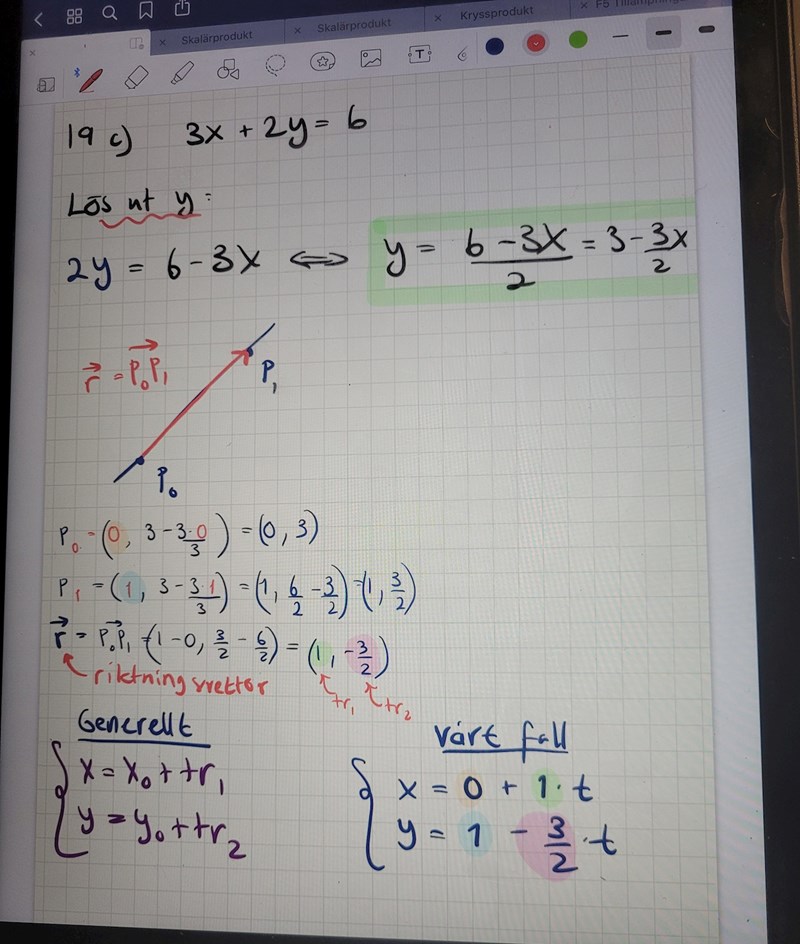 Skalärprodukt
Skalärprodukt
Kryssprodukt
T
19 c) 3x + 2y = 6
Lös ut y:
2y = 6 - 3x ⇔ y = (6 - 3x)/2 = 3 - 3x/2
r⃗ = P₀P₁
P₁
P₀
P₀ = (0, 3 - 3·0/3) = (0, 3)
P₁ = (1, 3 - 3·1/3) = (1, 6/2 - 3/2) = (1, 3/2)
r⃗ = P₀P₁ = (1-0, 3/2 - 6/2) = (1, -3/2)
riktningsvektor tr₁ tr₂
Generellt
x = x₀ + tr₁
y = y₀ + tr₂
Vårt fall
x = 0 + 1·t
y = 1 - 3/2·t